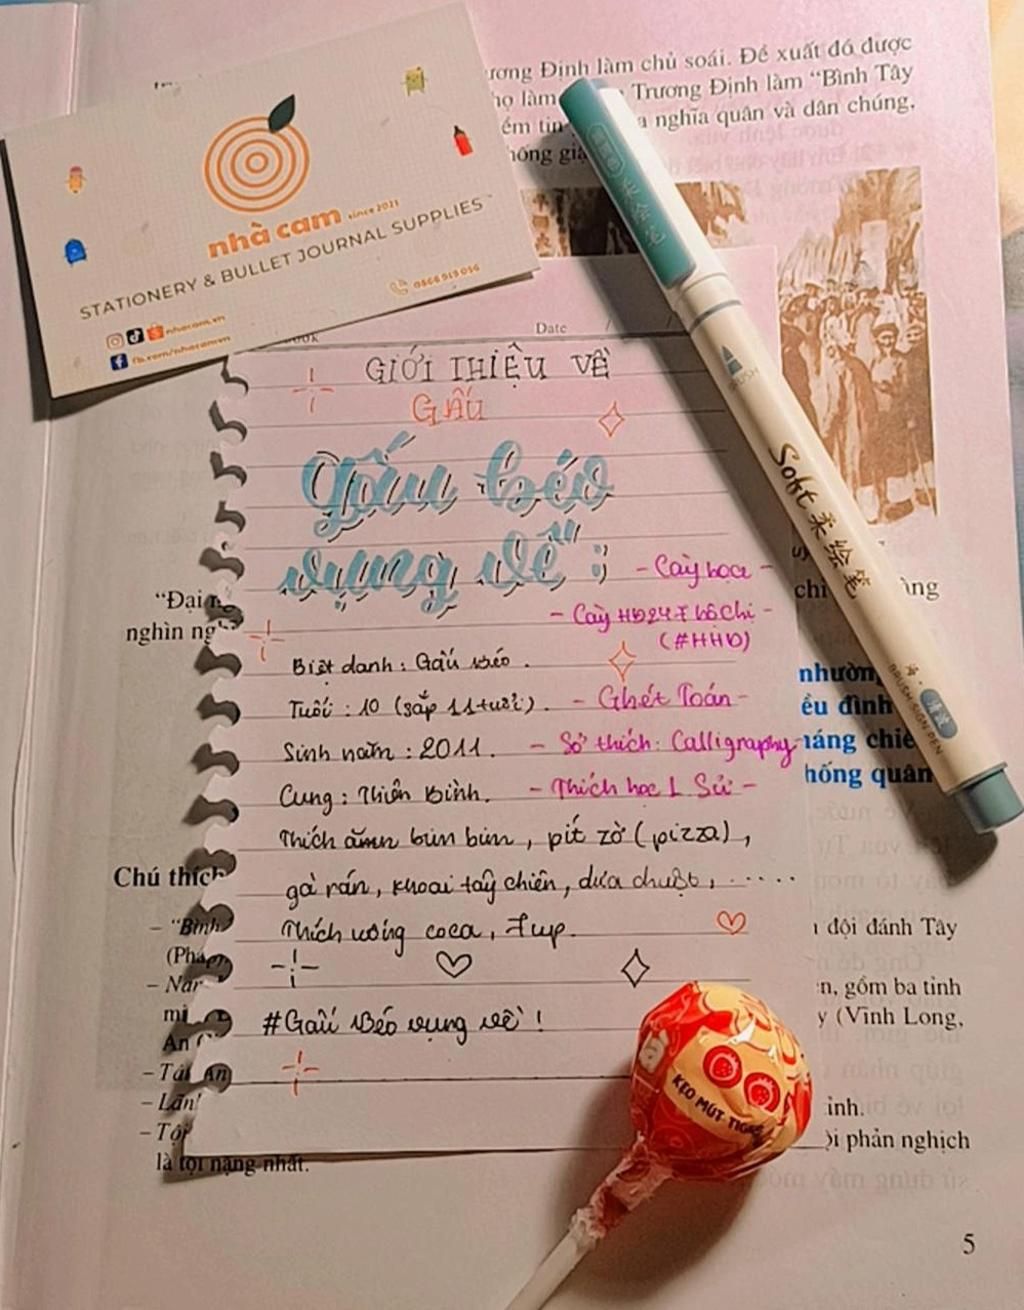 ương Định làm chủ soái. Đề xuất đó được
họ làm Trương Định làm “Bình Tây
ềm tin a nghĩa quân và dân chúng,
hống giặ
nhà cam since 2021
STATIONERY & BULLET JOURNAL SUPPLIES
0866919096
nhacam.vn
fb.com/nhacamvn
Date
GIỚI THIỆU VỀ
GẤU
Gấu béo
vụng về :
BRUSH
Soft 柔绘笔
BRUSH SIGN PEN
- Cày hoa -
- Cày HĐ247 hô chi -
(#HHD)
“Đại n
nghìn ng
chi àng
Biệt danh : Gấu Béo .
Tuổi : 10 (sắp 11 tuổi) . - Ghét Toán -
Sinh năm : 2011. - Sở thích: Calligraphy -
Cung : Thiên Bình. - Thích học L Sử -
Thích ăn bún bún, pít zờ (pizza),
gà rán, khoai tây chiên, dưa chuột, .....
Thích uống coca, 7up.
#Gấu Béo vụng về !
nhường
ều đình
háng chiế
hống quân
Chú thích
– “Bình
(Pháp)
– Năr
mì
An
– Tái An
– Lãn
– Tội
là tội nặng nhất.
ı đội đánh Tây
n, gồm ba tỉnh
y (Vĩnh Long,
ỉnh.
ội phản nghịch
KẸO MÚT TIGER
5